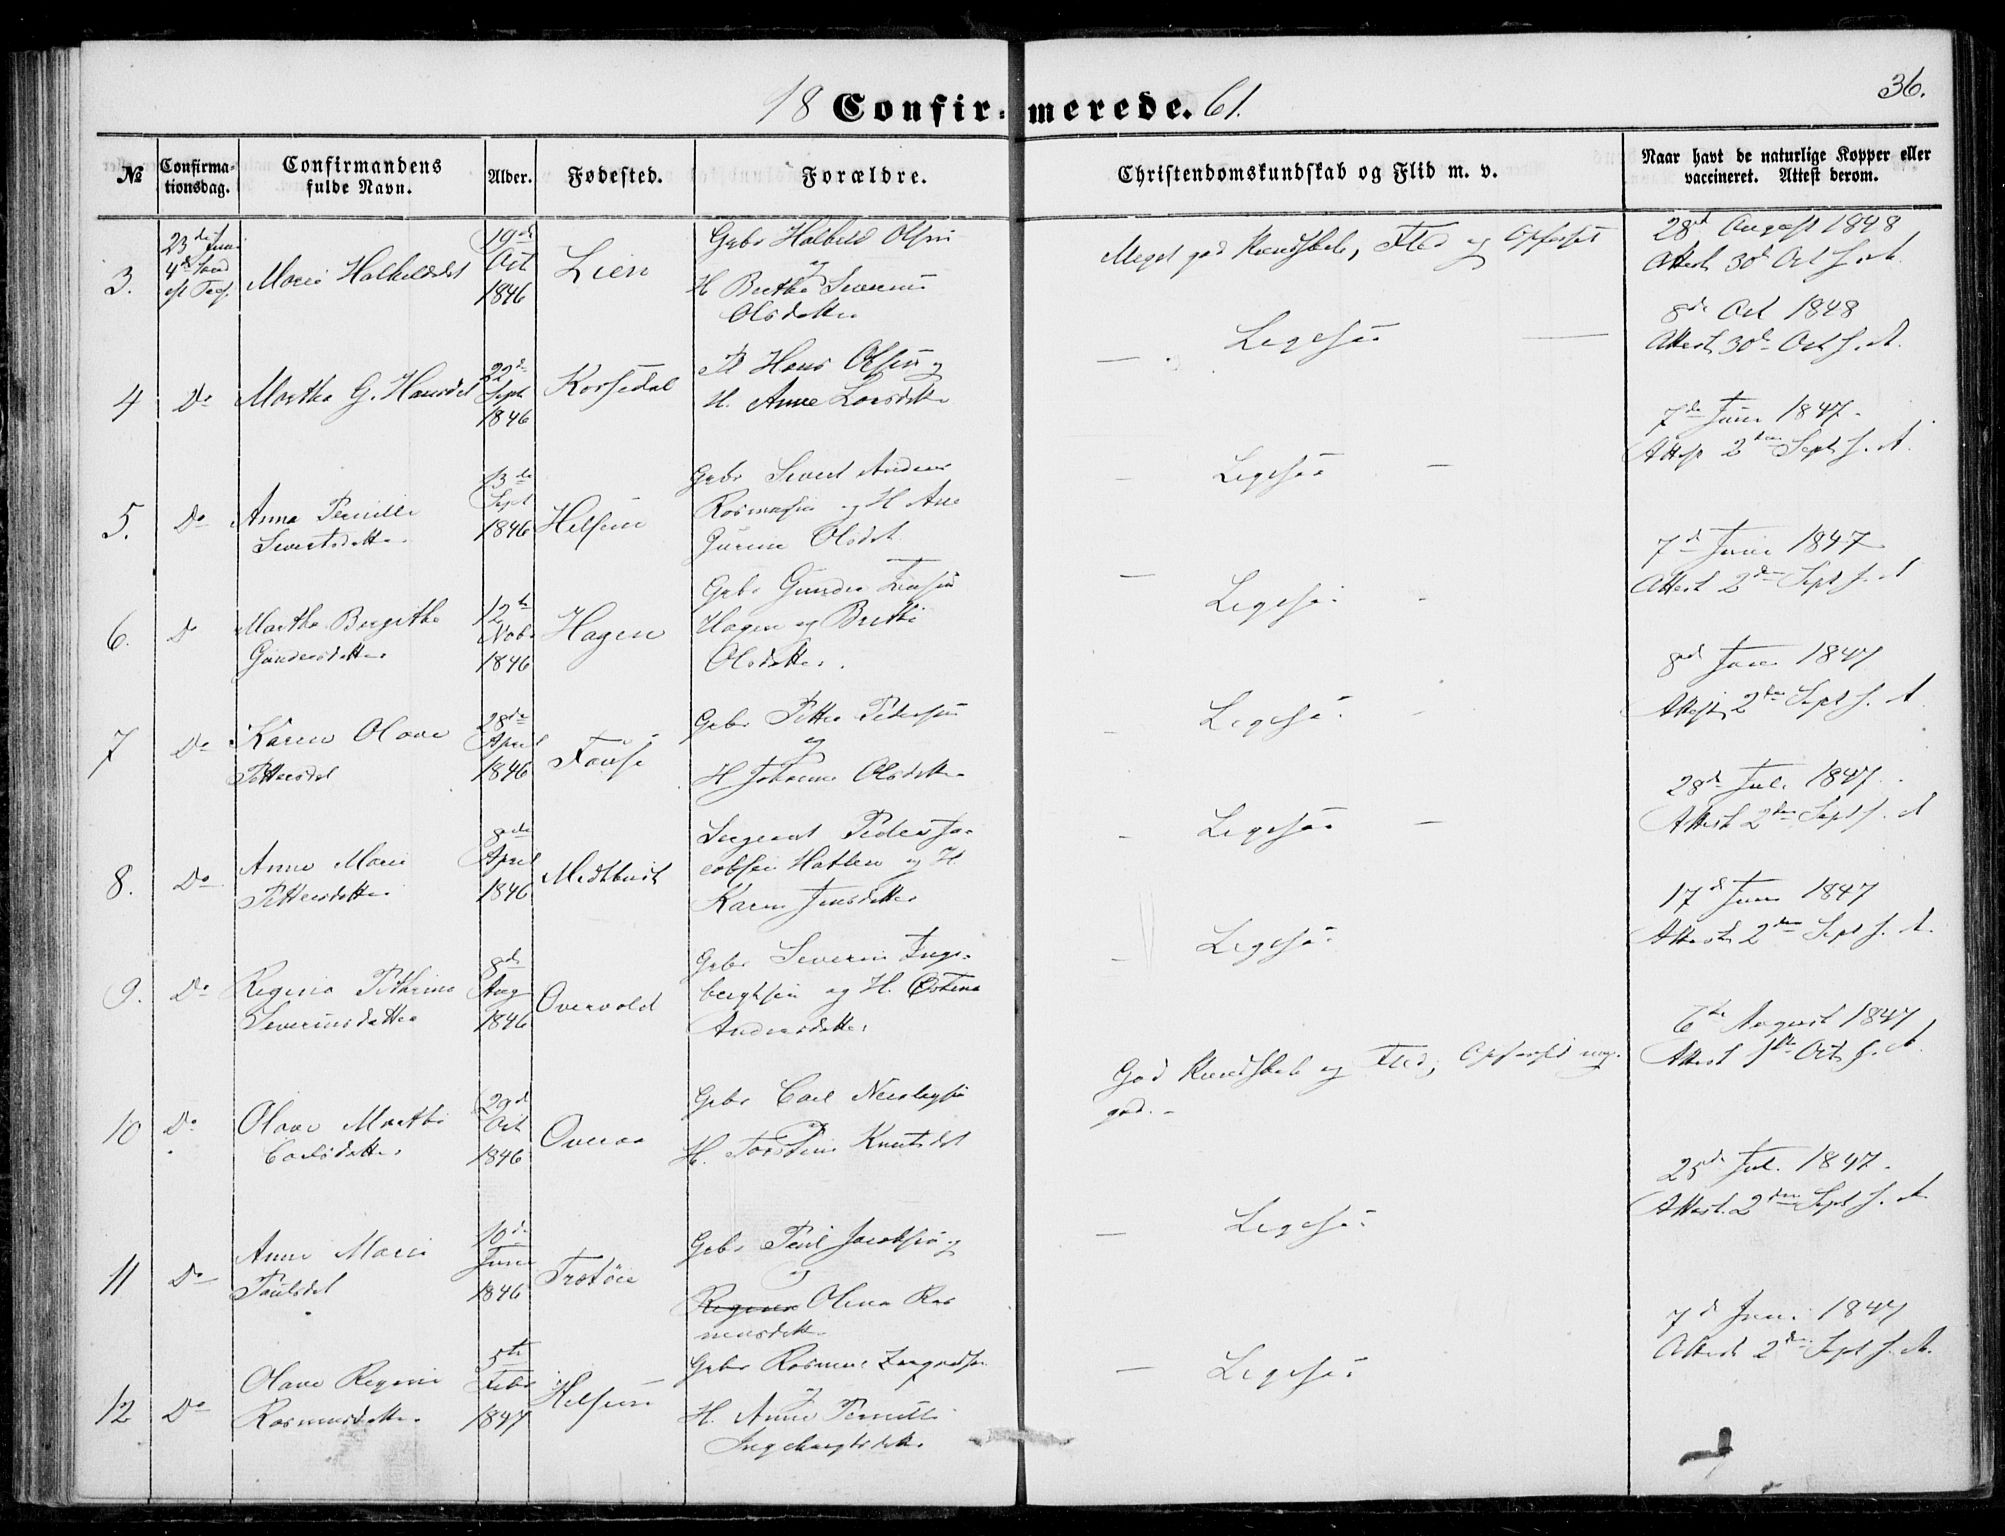 18 Confir- merede. 61.
36.
№
Confirma-
tionsdag.
Confirmandens
fulde Navn.
Alder.
Fødested.
Forældre.
Christendomskundskab og Flid m. v.
Naar havt de naturlige Kopper eller
vaccineret. Attest derom.
3.
23de Juni
4de
Marie
19de
Oct
1846
Lien
Gbr Olsen
og
H Berthe
Olsdatter
Meget god Kundskab, Flid og Opførsel
28de August 1848
Attest 30de Oct s. A.
4
Do
Martha G. Hansdt
22de
Sept
1846
Korsedal
Hans Olsen og
H. Anne Larsdatter
— Ligesaa —
8de Oct 1848
Attest 30de Oct s. A.
5.
Do
Anna Pernille
Sivertsdatter
13de
Sept
1846
Helsem
Gbr Sivert Andreas
Rasmussen og H Ane
Gurine Olsdt
— Ligesaa —
7de Juni 1847.
Attest 2den Sept s. A.
6.
Do
Martha Bergithe
Gundersdatter
12te
Novbr
1846
Hagen
Gbr Gunder
Hagen og Berthe
Olsdatter.
— Ligesaa -
7de Juni 1847
Attest 2den Sept s. A
7
Do
Karen Olave
Pettersdt
28de
April
1846
Gbr Petter Pedersen
og
H Johanne Olsdatter
— Ligesaa -
8de Juni 1847
Attest 2den Sept s. A
8.
Do
Anne Marie
Pettersdatter
8de
April
1846
Sergeant Peder Ja-
cobsen Hatlen og H.
Karen Jensdatter
— Ligesaa —
28de Jul. 1847.
Attest 2den Sept s. A
9.
Do
Severinsdatter
8de
Aug
1846
Overvold
Gbr Severin Inge-
bergtsen og H.
Andersdatter
— Ligesaa
17de Juni 1847
Attest 2den Sept s. A.
10
Do
Olave Marthe
Carlsdatter
29de
Oct
1846
Overaa
Gbr Carl
og
H. Knutsdt
God Kundskab og Flid, Opførsel meg.
god. -
6te August 1847
Attest 1ste Oct s. A.
11
Do
Anne Marie
Paulsdt
10de
Juni
1846
Gbr Paul Jacobsen
og
Olena Ras
musdatter
— Ligesaa
25de Jul. 1847.
Attest. 2den Sept s. A.
12
Do
Olave Regine
Rasmusdatter
5te
Febr
1847
Helsem
Gbr Rasmus
og
H. Anne Pernille
Ingebrigtsdatter
— Ligesaa
7de Juni 1847
Attest 2den Sept s. A.